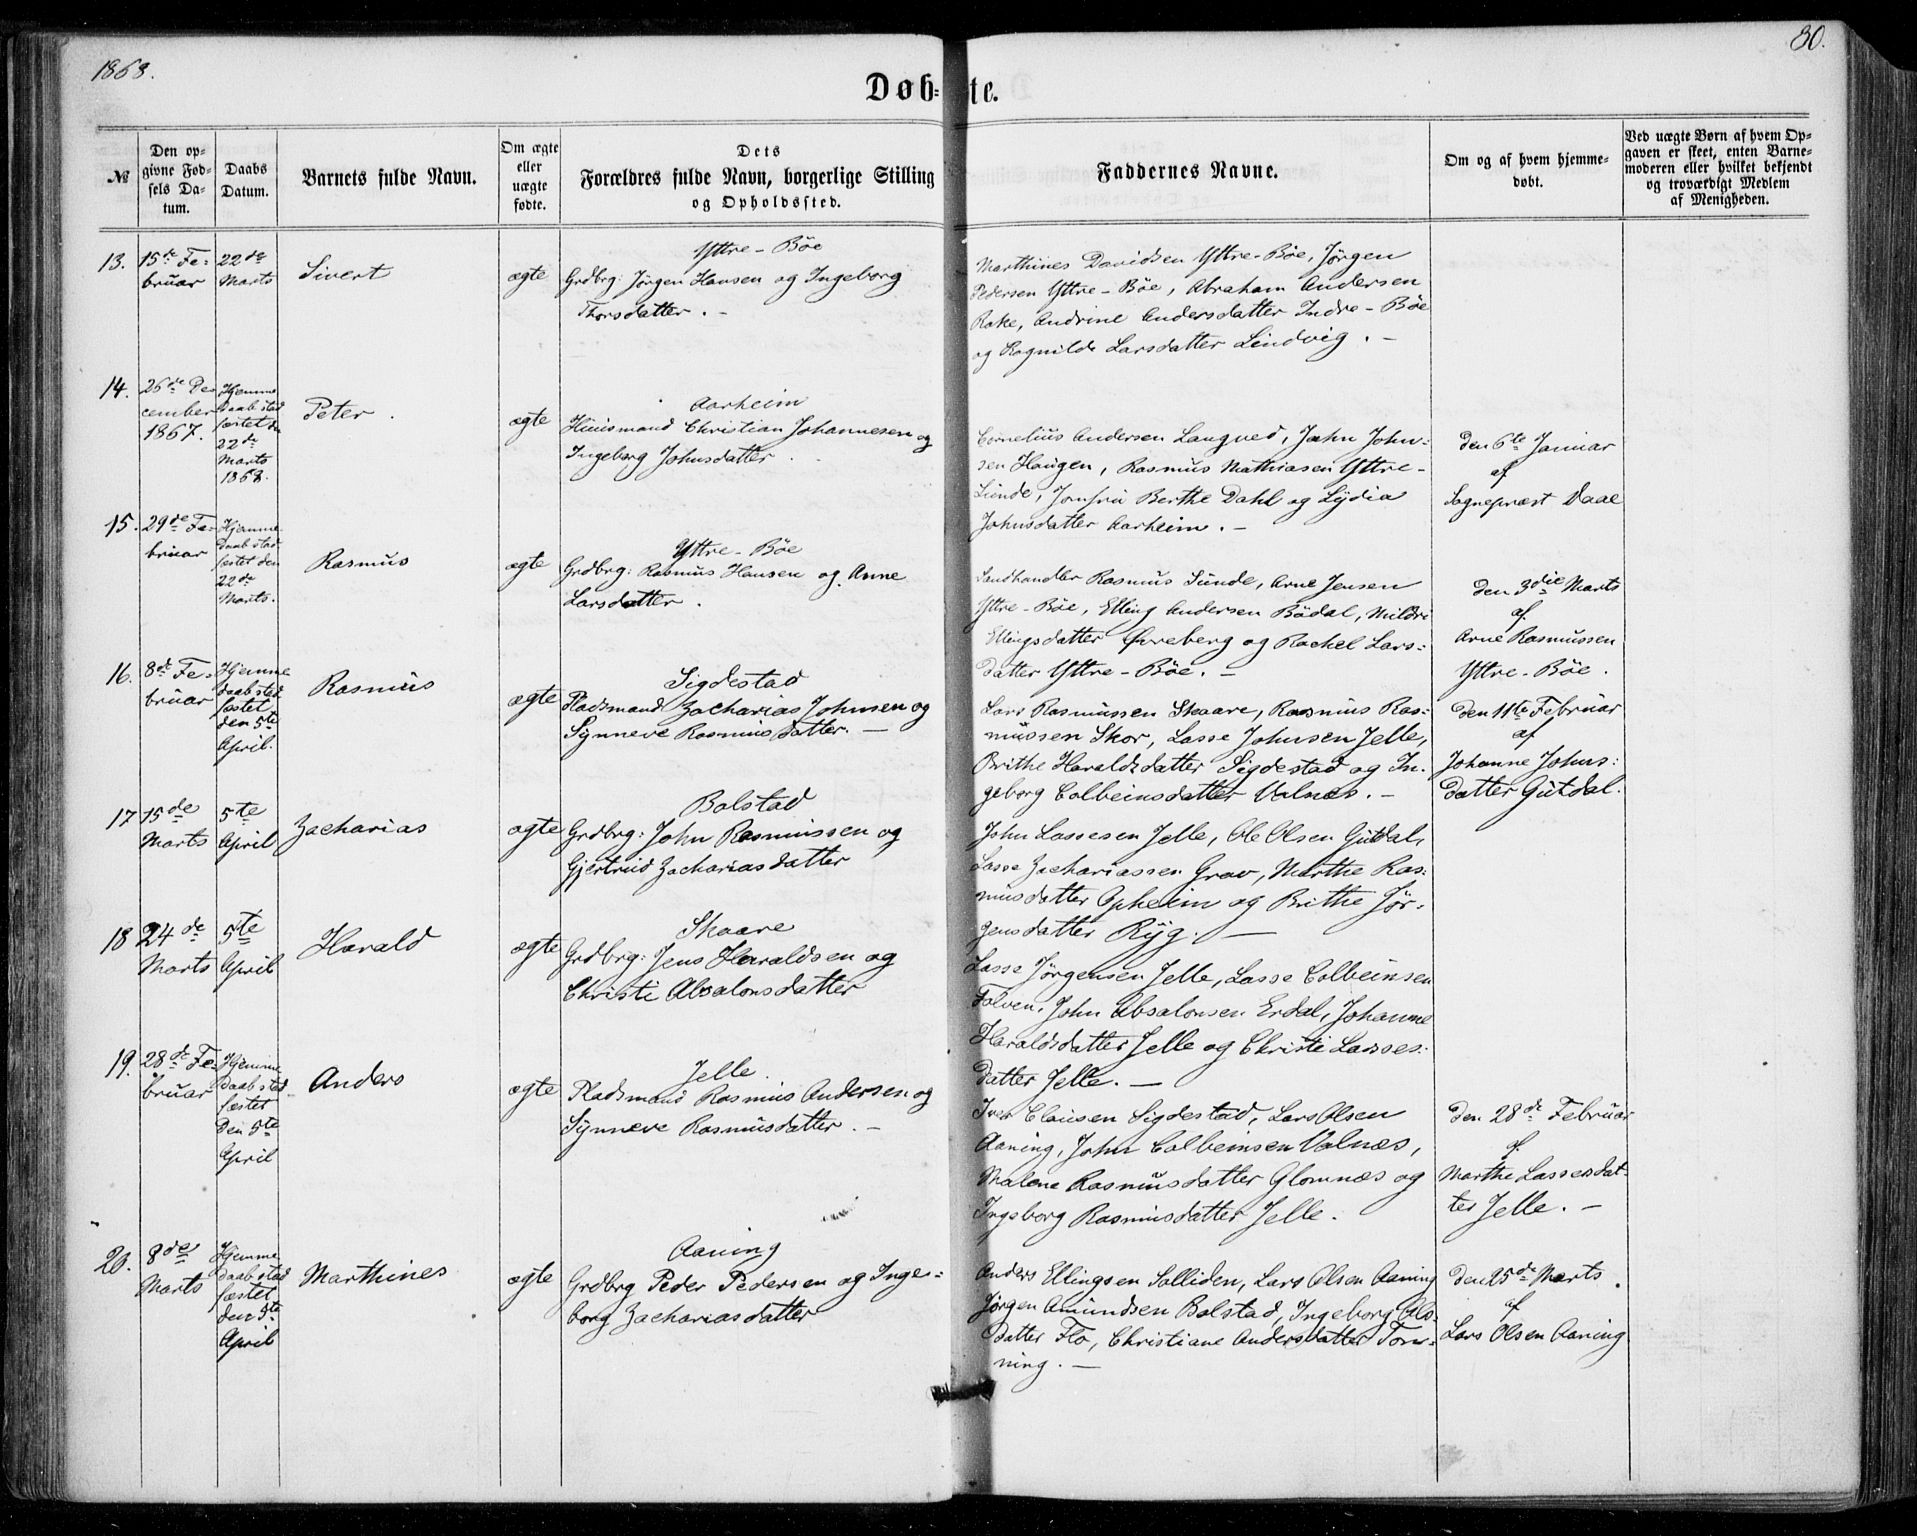 1868.
80.
Døb-te.
№
Den op-
givne Fød-
sels Da-
tum.
Daabs
Datum.
Barnets fulde Navn.
Om ægte
eller
uægte
fødte.
Dets
Forældres fulde Navn, borgerlige Stilling
og Opholdssted.
Faddernes Navne.
Om og af hvem hjemme-
døbt.
Ved uægte Børn af hvem Op-
gaven er skeet, enten Barne-
moderen eller hvilket bekjendt
og troværdigt Medlem
af Menigheden.
13.
15de Fe-
bruar
22de
Marts
Sivert
ægte
Yttre-Böe
Grdbrg: Jørgen Hansen og Ingeborg
Thorsdatter.-
Marthines Davidsen Yttre-Böe, Jørgen
Pedersen Yttre-Böe, Abraham Andersen
Rake, Andrine Andersdatter Indre-Böe
og Ragnilde Larsdatter Lindvig.-
14.
26de De-
cember
1867.
Hjemme
Daab stad
fæstet den
22de
Marts
1868.
Peter.
ægte
Aarheim
Huusmand Christian Johannesen og
Ingeborg Johnsdatter.
Cornelius Andersen Langved, John John-
sen Haugen, Rasmus Mathiasen Yttre-
Sunde, Jomfru Berthe Dahl og Lydia
Johnsdatter Aarheim.-
Den 6te Januar
af
Sognepræst Daae
15.
29de Fe-
bruar
Hjemme
Daab stad-
fæstet den
22de
Marts.
Rasmus
ægte
Yttre-Böe
Grdbrg: Rasmus Hansen og Anne
Larsdatter.
Landhandler Rasmus Sunde, Arne Jensen
Yttre-Böe, Elling Andersen Bödal, Mildri
Ellingsdatter Övreberg og Rachel Lars-
datter Yttre-Böe.-
den 3die Marts
af
Arne Rasmussen
Yttre-Böe.
16.
8de Fe-
bruar
Hjemme
daab stad
fæstet
den 5te
April.
Rasmus
ægte
Sigdestad
Pladsmand Zacharias Johnsen og
Synneve Rasmusdatter.-
Lars Rasmussen Skaare, Rasmus Ras-
mussen Skor, Lasse Johnsen Jelle,
Brithe Haraldsdatter Sigdestad og In-
geborg Colbeinsdatter Valnæs.-
Den 11te Februar
af
Johanne Johns:
datter Gutdal.
17
15de
Marts
5te
April
Zacharias
ægte
Bolstad
Grdbrg: John Rasmussen og
Gjertrud Zachariasdatter
John Lassesen Jelle, Ole Olsen Gutdal,
Lasse Zachariassen Grov, Marthe Ras-
musdatter Opheim og Brithe Jör-
gensdatter Ryg.-
18
24de
Marts
5te
April
Harald
ægte
Skaare
Grdbrg: Jens Haraldsen og
Christi Absalonsdatter
Lasse Jørgensen Jelle, Lasse Colbeinsen
Folven, John Absalonsen Erdal, Johanne
Haraldsdatter Jelle og Christi Lasses:
datter Jelle.-
19.
28de Fe-
bruar
Hjemme
Daab stad
fæstet
Den 5te
April
Anders
ægte
Jelle.
Pladsmand Rasmus Andersen og
Synneve Rasmusdatter.-
Iver Clausen Sigdestad, Lars Olsen
Aaning, John Colbeinsen Valnæs,
Malene Rasmusdatter Glomnæs og
Ingeborg Rasmusdatter Jelle.
Den 28de Februar
af
Marthe Lassesdat-
ter Jelle.-
20.
8de
Marts
Hjemme
daab stad
fæstet
den 5te
April
Marthines
ægte
Aaning
Grdbrg Peder Pedersen og Inge-
borg Zachariasdatter
Anders Ellingsen Solliden, Lars Olsen Aaning
Jörgen Amundsen Bolstad, Ingeborg Ols-
datter Flo, Christiane Andersdatter Ton-
ning.-
Den 25de Marts.
af
Lars Olsen Aaning